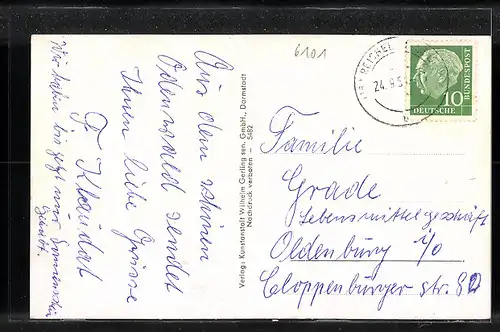 Aus dem schönen
Odenwald sendet
Ihnen liebe Grüsse
F. Klaudat
Wir haben bis jetzt nur Sonnenschein
gehabt.
Verlag: Kunstanstalt Wilhelm Gerling sen. GmbH., Darmstadt
Nachdruck verboten — 5482
6101
REICHEL
24. 9. 5
b
10
DEUTSCHE
BUNDESPOST
Familie
Grade
Lebensmittelgeschäft
Oldenburg i/o
Cloppenburger str. 80